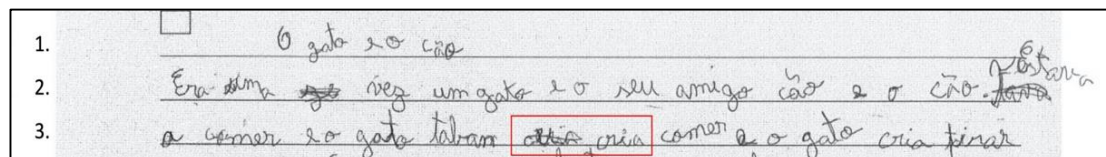 1. O gato e o cão
2. Era uma vez um gato e o seu amigo cão e o cão. Estava
3. a comer e o gato tabam cria comer e o gato cria tirar